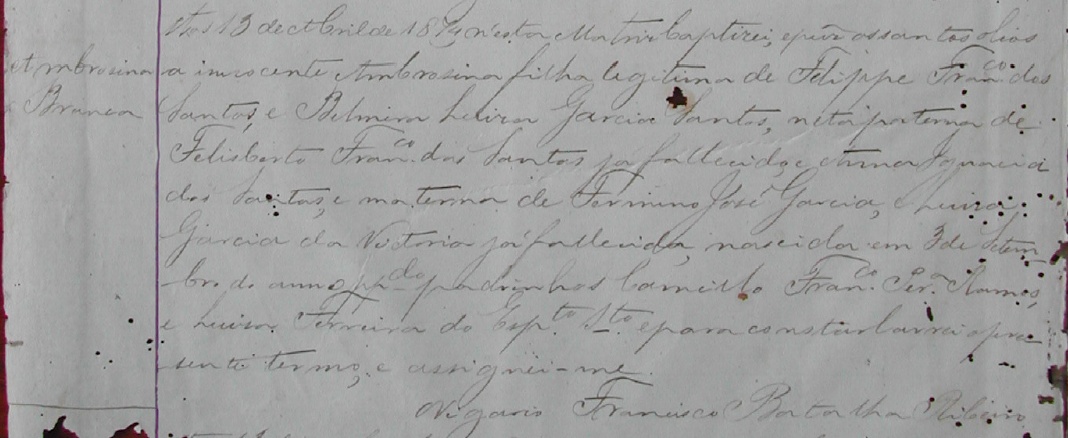 Ambrosina
Branca
Aos 13 de Abril de 1874 n'esta Matriz baptizei, e puz os santos olios
a innocente Ambrosina filha legitima de Felippe Fran.co dos
Santos, e Belmira Luiza Garcia Santos, neta paterna de
Felisberto Fran.co dos Santos ja fallecido, e Anna Ignacia
dos Santos, e materna de Fermino José Garcia, e Luiza
Garcia da Victoria já fallecida, nascida em 3 de Setem
bro do anno pp.do padrinhos Camillo Fran.co Per.a Ramos,
e Luiza Ferreira do Esp.to S.to e para constar lavrei o pre
sente termo, e assignei-me.
Vigario Francisco Batalha Ribeiro